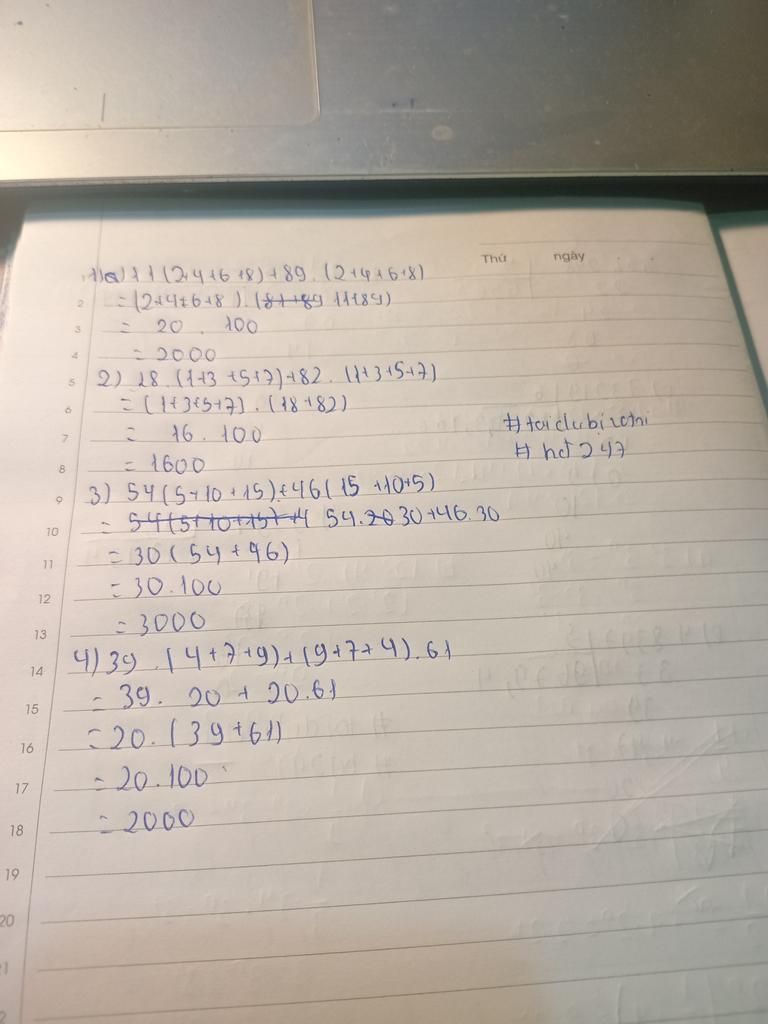 Thứ ngày
1) a) 11 (2+4+6+8)+89. (2+4+6+8)
2 =(2+4+6+8). (81+89 11+89)
3 = 20 . 100
4 = 2000
5 2) 18. (1+3+5+7)+82. (1+3+5+7)
6 = (1+3+5+7). (18+82)
7 = 16. 100
8 = 1600
# hot 247
9 3) 54(5+10+15)+46(15+10+5)
10 = 54(5+10+15)+4 54.20 30+46.30
11 = 30(54+46)
12 = 30.100
13 = 3000
14 4) 39. (4+7+9)+(9+7+4).61
15 = 39. 20 + 20.61
16 = 20. (39+61)
17 = 20.100
18 = 2000
19
20